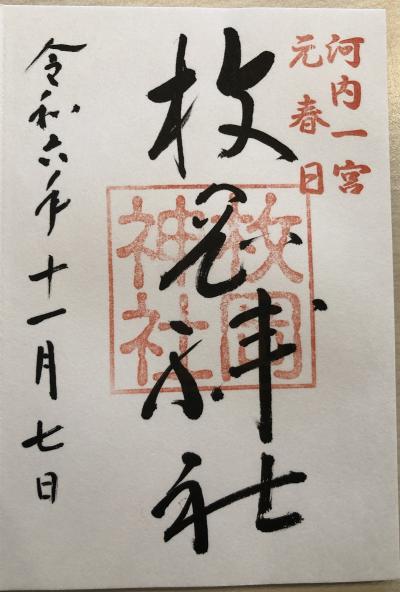 河内一宮
元春日
枚岡神社
枚岡
神社
令和六年十一月七日